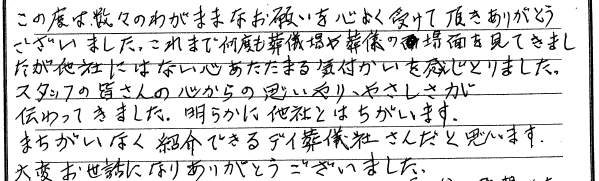 この度は数々のわがままなお願いを心よく受けて頂きありがとう
ございました。これまで何度も葬儀場や葬儀の場面を見てきまし
たが他社にはない心あたたまる気付かいを感じとりました。
スタッフの皆さんの心からの思いやり、やさしさが
伝わってきました。明らかに他社とはちがいます。
まちがいなく紹介できるデイ葬儀社さんだと思います。
大変お世話になりありがとうございました。